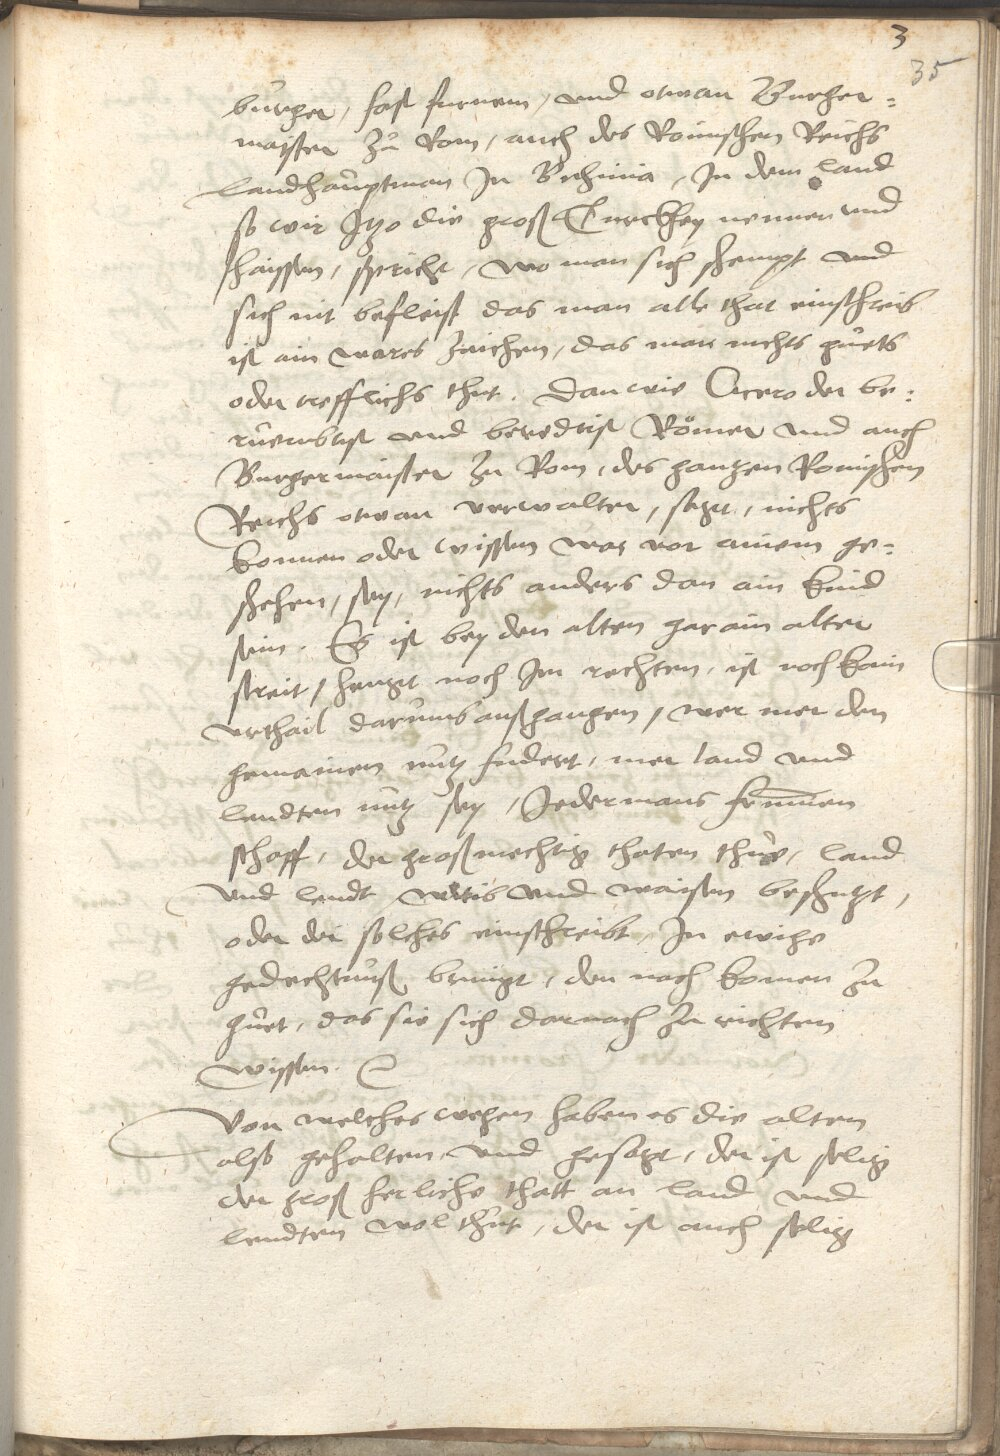 3
35
burger, fast furnem, und etwan Burger=
maister zů Rom, auch des Romischen Reichs
landhauptman In Bithinia, In dem land
so wir Jtzo die groß Turckhey nennen und
haissen, spricht, wo man sich schempt und
sich nit befleist das man alle that einschreib
ist ain wares zaichen, das man nichts guets
oder trefflichs thut. Dan wie Cicero der be=
ruembtist und beredtist Römer und auch
Burgermaister zu Rom, des gantzen Romischen
Reichs etwan verwalter, sagt, nichts
konnen oder wissen was vor ainem ge=
schehen, sey, nichts anders dan ain kind
sein. Es ist bey den alten gar ain alter
streit, hengt noch Im rechten, ist noch kain
urthail darumb außgangen, wer mer den
gemainen nutz fudert, mer land und
leudten nutz sey, Jedermans frummen
schaff, der großmechtig thaten thue, land
und leudt witib und waisen beschutzt,
oder der solches einschreibt, In ewige
gedechtnuß bringt, den nach komen zu
guet, das sie sich darnach zu richten
wissen.
Von welches wegen haben es die alten
also gehalten, und gesagt, der ist selig
der groß herliche thatt an land und
leudten wol thut, der ist auch selig